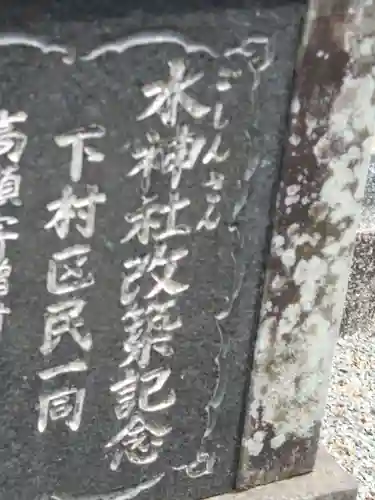 水神社改築記念
ごしんさん
下村区民一同
高須字